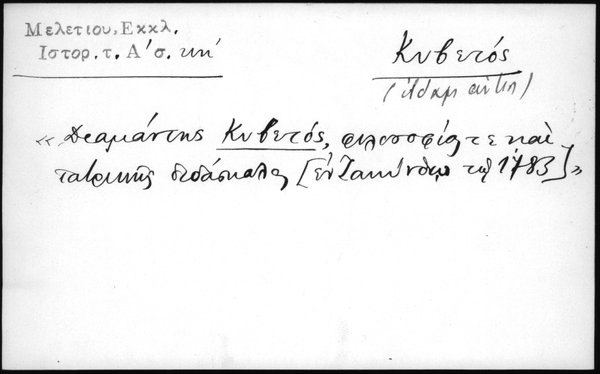 Μελετίου, Εκκλ.
Ιστορ. τ. Α΄ σ. κη΄
Κυβετός
«Διαμάντης Κυβετός, φιλοσοφίας τε καὶ
ἰατρικῆς διδάσκαλος [ἐν Ζακύνθῳ τῷ 1783]»